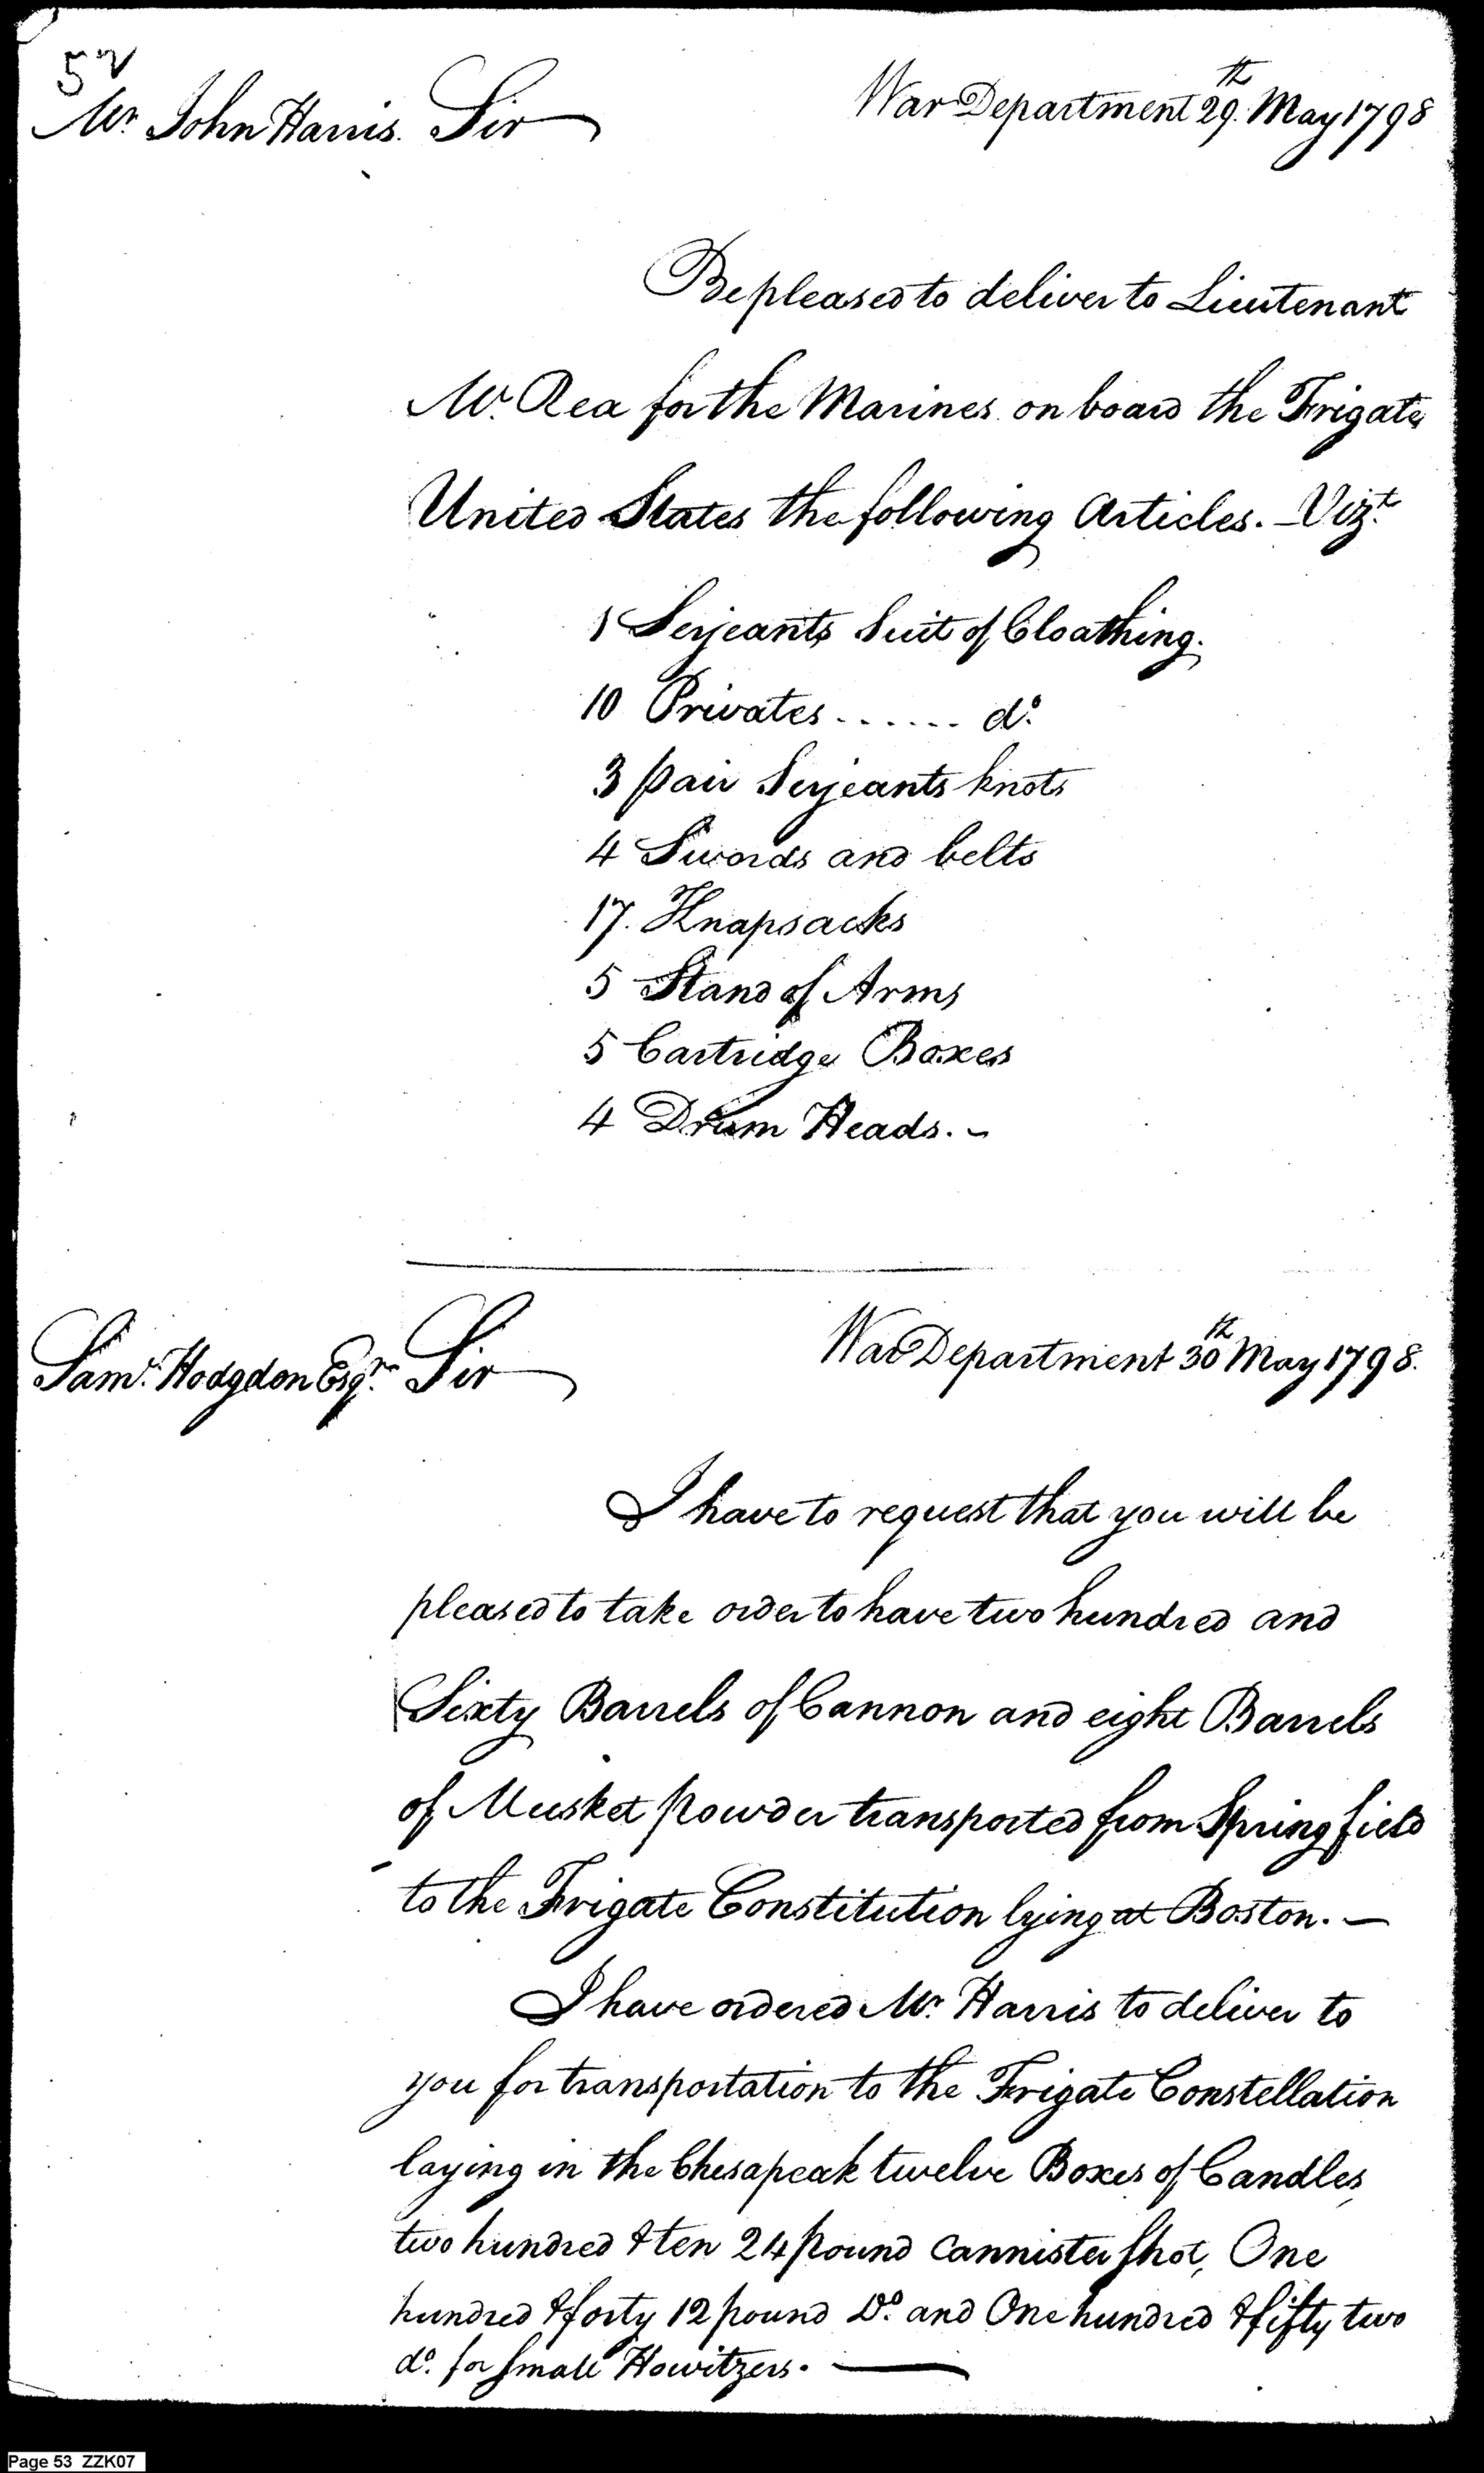 52
Mr. John Harris. Sir
War Department 29th. May 1798
Be pleased to deliver to Lieutenant
Mc. Rea for the Marines on board the Frigate
United States the following Articles. - Vizt.
1 Serjeants Suit of Cloathing.
10 Privates ....... do.
3 pair Serjeants knots
4 Swords and belts
17. Knapsacks
5 Stand of Arms
5 Cartridge Boxes
4 Drum Heads. -
Saml. Hodgdon Esqr. Sir
War Department 30th May 1798.
I have to request that you will be
pleased to take order to have two hundred and
Sixty Barrels of Cannon and eight Barrels
of Musket powder transported from Springfield
to the Frigate Constitution lying at Boston. —
I have ordered Mr. Harris to deliver to
you for transportation to the Frigate Constellation
laying in the Chesapeak twelve Boxes of Candles,
two hundred & ten 24 pound Cannister shot, One
hundred & forty 12 pound Do. and One hundred & fifty two
do. for small Howitzers. —
Page 53 ZZK07